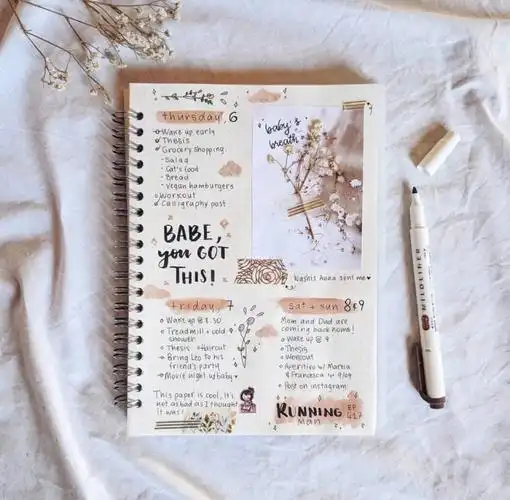 thursday, 6
Wake up early
Thesis
Grocery shopping
- Salad
- Cat's food
- Bread
- vegan hamburgers
Workout
Calligraphy post
BABE,
you GOT
THIS!
baby's
breath
Nashis Anna sent me
friday, 7
Wake up @ 8.30
Treadmill + cold
shower
Thesis
Haircut
Bring Leo to his
friend's party
Movie night w/ baby
This paper is cool, it's
not as bad as I thought
it was!
sat + sun 8&9
Mom and Dad are
coming back home!
Wake up @ 9
Thesis
Workout
Aperitivo w/ Marta
& Francesca 9/09
Post on instagram
RUNNING
man
EP
MILDLINER